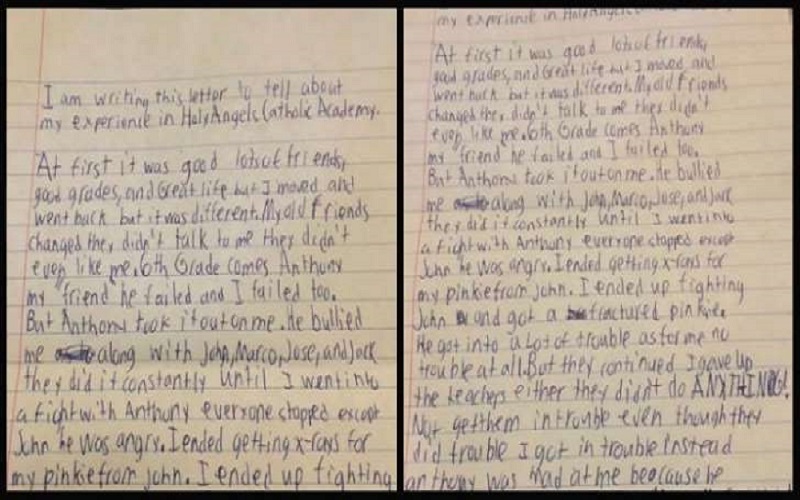 I am writing this letter to tell about
my experience in Holy Angels Catholic Academy.
At first it was good lots of friends,
good grades, and Great life but I moved and
went back but it was different. My old friends
changed they didn't talk to me they didn't
even like me. 6th Grade comes Anthony
my friend he failed and I failed too.
But Anthony took it out on me. He bullied
me along with John, Marco, Jose, and Jack
they did it constantly until I went into
a fight with Anthony everyone stopped except
John he was angry. I ended getting x-rays for
my pinkie from john. I ended up fighting
my experience in Holy Angels
At first it was good lots of friends,
good grades, and Great life but I moved and
went back but it was different. My old friends
changed they didn't talk to me they didn't
even like me. 6th Grade comes Anthony
my friend he failed and I failed too.
But Anthony took it out on me. He bullied
me along with John, Marco, Jose, and Jack
they did it constantly until I went into
a fight with Anthony everyone stopped except
John he was angry. I ended getting x-rays for
my pinkie from john. I ended up fighting
John and got a fractured pinkie.
He got into a lot of trouble as for me no
trouble at all. But they continued I gave up
the teachers either they didn't do ANYTHING!
Not get them in trouble even though they
did trouble I got in trouble instead
anthony was mad at me beacause he